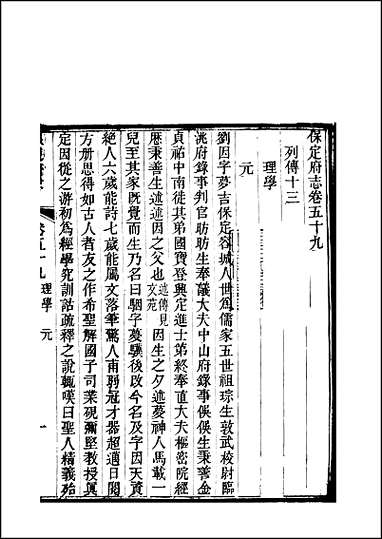 保定府志卷五十九
列傳十三
理學
元
劉因字夢吉保定容城人世爲儒家五世祖琮生敦武校尉臨
洮府錄事判官昉昉生奉議大夫中山府錄事俁俁生秉善金
貞祐中南徙其弟國寶登興定進士第終奉直大夫樞密院經
歷秉善生述述因之父也述傳見文苑因生之夕述夢神人馬載一
兒至其家既覺而生乃名曰駰字夢驥後改今名及字因天資
絕人六歲能詩七歲能屬文落筆驚人甫弱冠才器超邁日閱
方册思得如古人者友之作希聖解國子司業硯彌堅教授眞
定因從之游初爲經學究訓詁疏釋之說輒嘆曰聖人精義殆
卷五十九 理學 元 一